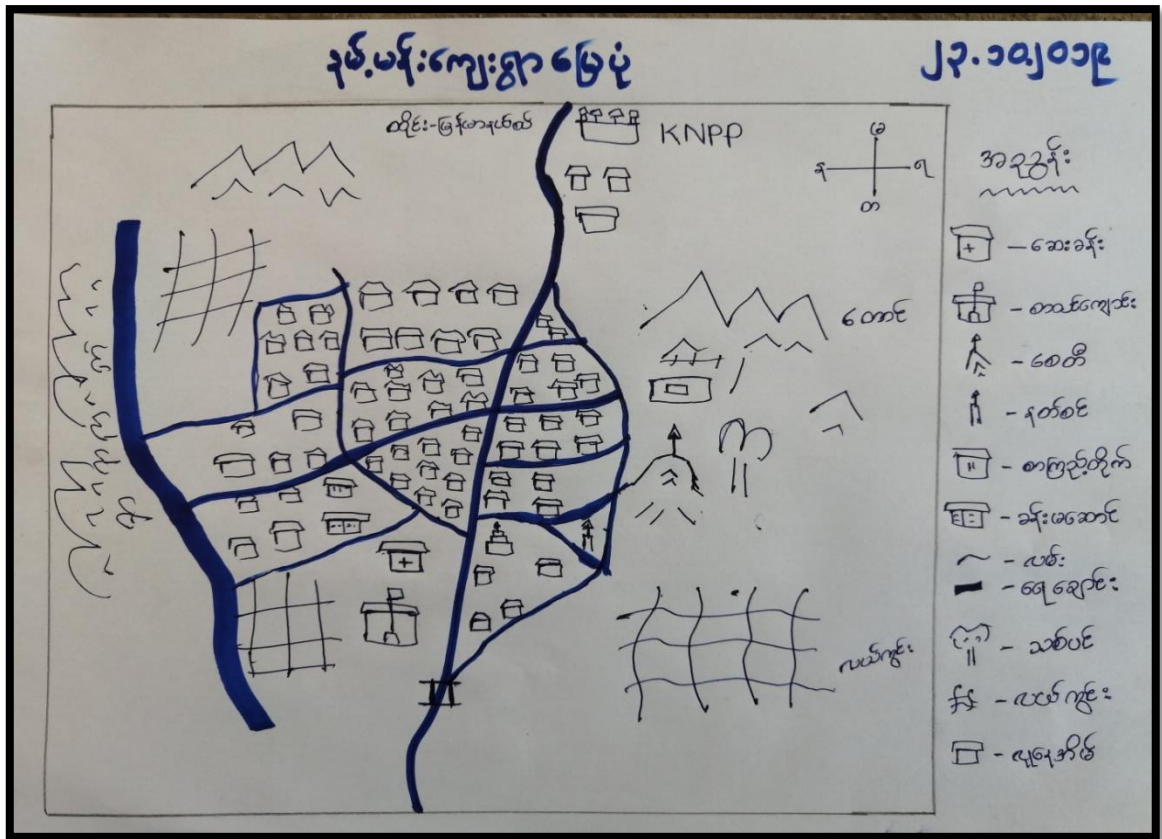 နမ့်မန်းကျေးရွာ မြေပုံ
၂၃.၁၀.၂၀၁၉
KNPP
မ
န
ရ
တ
အညွှန်း
တောင်
လယ်ကွင်း
– ဆေးခန်း
– စာသင်ကျောင်း
– စေတီ
– နတ်စင်
– စာကြည့်တိုက်
– ခန်းမဆောင်
– လမ်း
– ရေချောင်း
– သစ်ပင်
– လယ်ကွင်း
– လူနေအိမ်